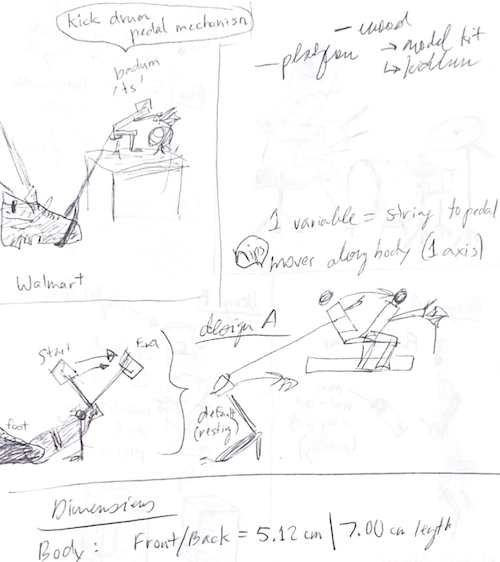 kick drum
pedal mechanism
badum
'ts'
Walmart
- wood
→ model kit
1 variable = string to pedal
hips mover along body (1 axis)
design A
Start
End
foot
default
(resting)
Dimensions
Body: Front/Back = 5.12 cm | 7.00 cm length